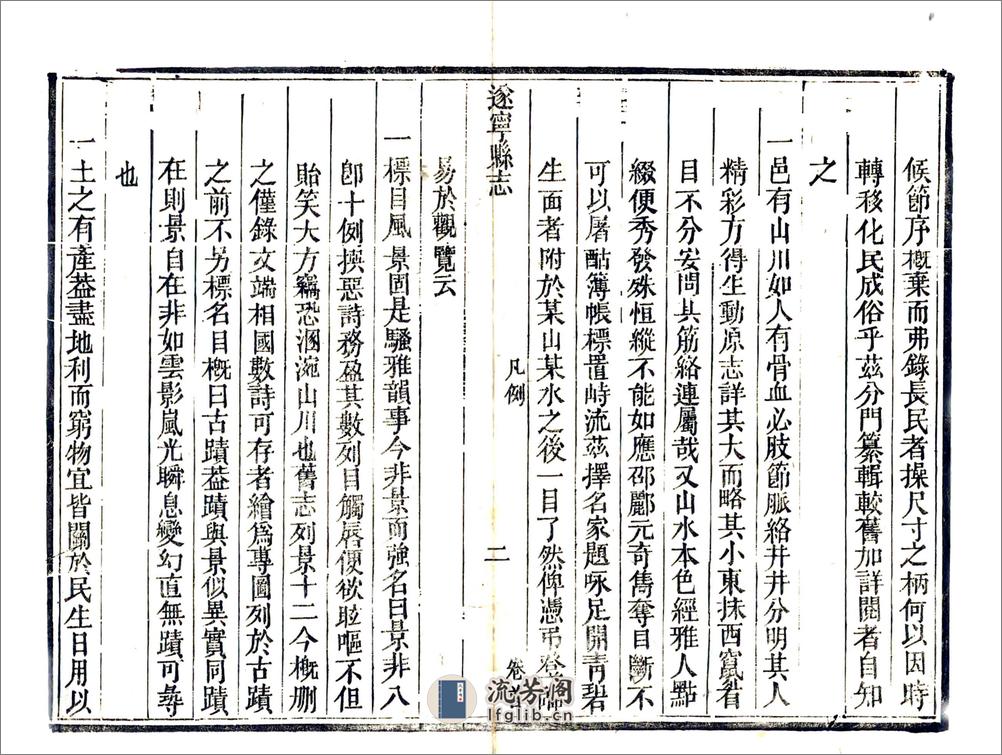 候節序概棄而弗錄長民者操尺寸之柄何以因時
轉移化民成俗乎茲分門纂輯較舊加詳閱者自知
之
一邑有山川如人有骨血必肢節脈絡井井分明其人
精彩方得生動原志詳其大而略其小東抹西竄眉
目不分安問其筋絡連屬哉又山水本色經雅人點
綴便秀發殊恒縱不能如應邵酈元奇雋奪目斷不
可以屠酤簿帳標置峙流茲擇名家題咏足開青碧
生面者附於某山某水之後一目了然俾憑弔登
遂寧縣志
凡例
二
卷
易於觀覽云
一標目風景固是騷雅韻事今非景而強名曰景非八
卽十例撰惡詩務盈其數列目觸唇便欲眩嘔不但
貽笑大方竊恐溷涴山川也舊志列景十二今概刪
之僅錄文端相國數詩可存者繪爲專圖列於古蹟
之前不另標名目概曰古蹟葢蹟與景似異實同蹟
在則景自在非如雲影嵐光瞬息變幻直無蹟可尋
也
一土之有產葢盡地利而窮物宜皆關於民生日用以
流芳阁
lfglib.cn